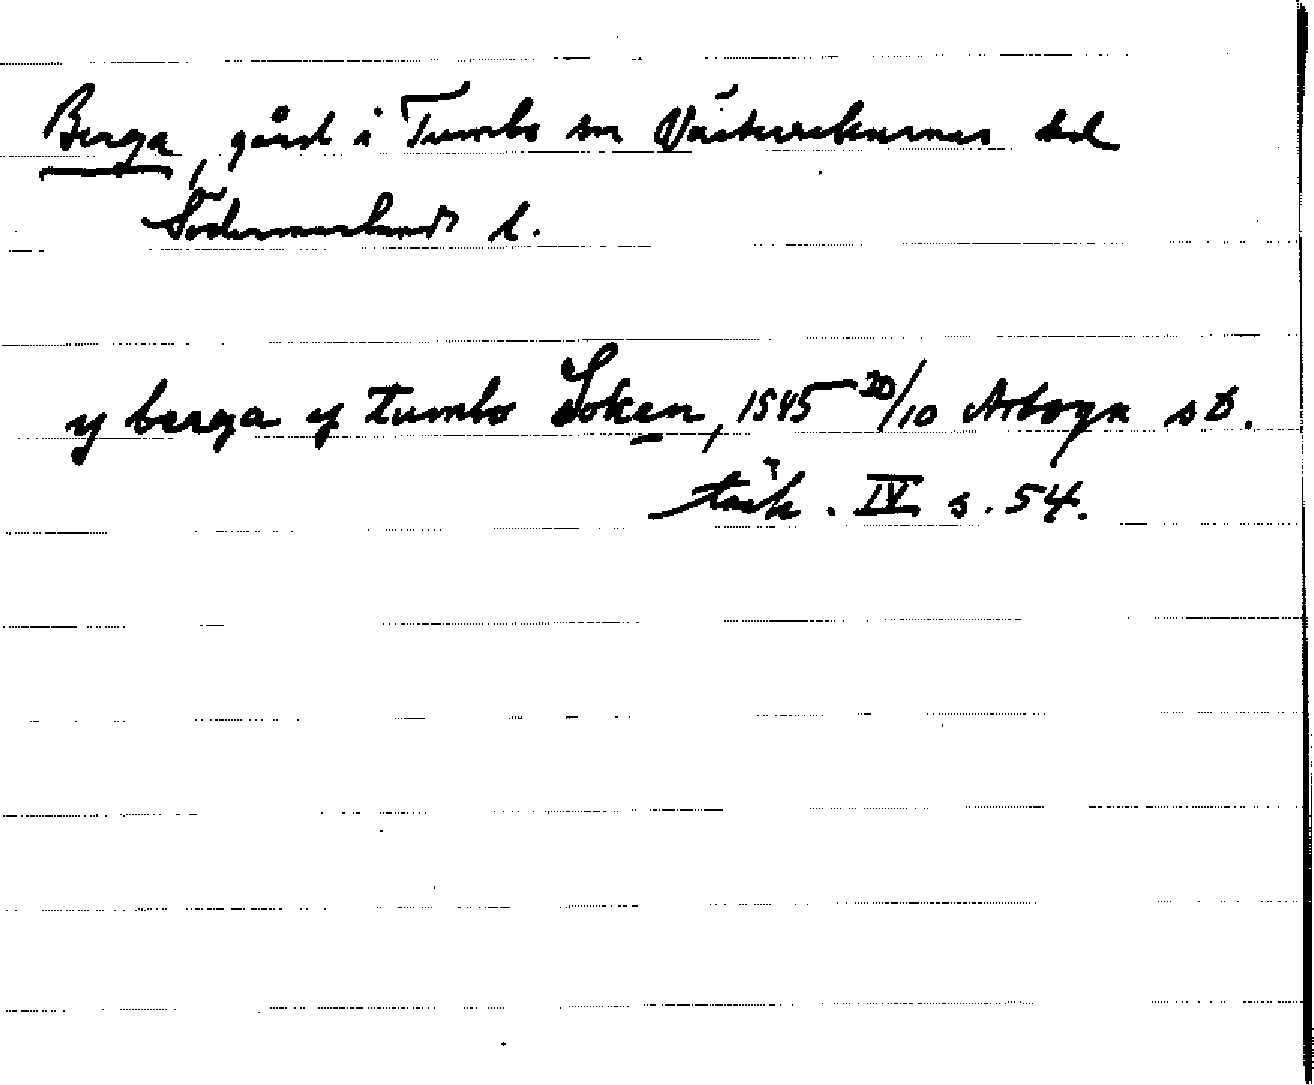 Berga, gård i Tumbo sn Västerrekarnes hd
Södermanlands l.
y berga y tumbo Soken, 1545 20/10 Arboga sD.
tänk. IV s. 54.